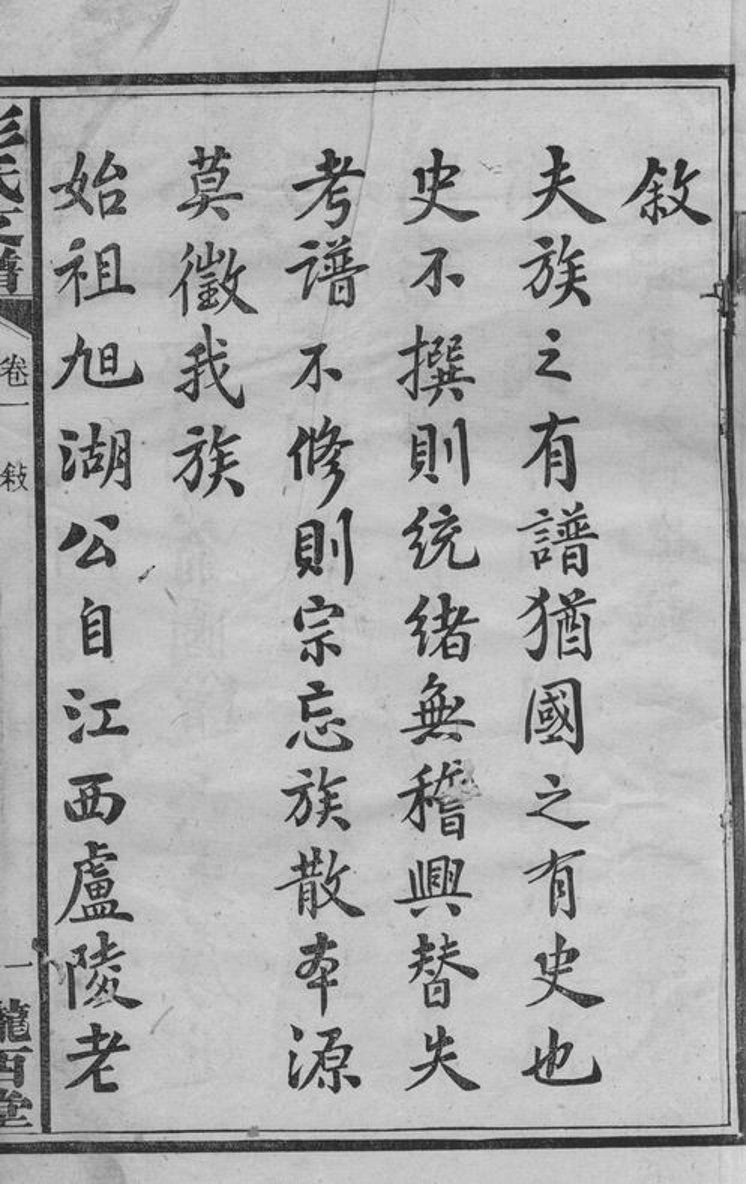 敘
夫族之有譜猶國之有史也
史不撰則統緒無稽興替失
考譜不修則宗忘族散本源
莫徵我族
始祖旭湖公自江西盧陵老
彭氏支譜
卷一
敍
一
隴西堂